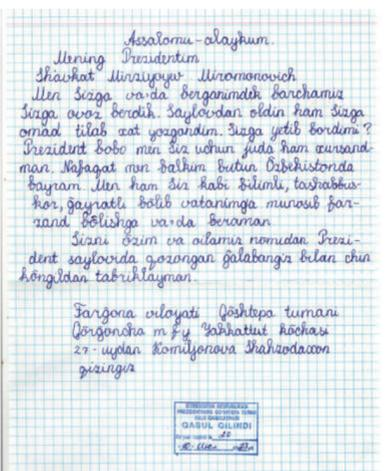 Assalomu-alaykum.
Mening Prezidentim
Shavkat Mirziyoyev Miromonovich
Men Sizga va'da berganimdek barchamiz
Sizga ovoz berdik. Saylovdan oldin ham Sizga
omad tilab xat yozgandim. Sizga yetib bordimi?
Prezident bobo men Siz uchun juda ham xursand-
man. Nafaqat men balkim butun Ozbekistonda
bayram. Men ham Siz kabi bilimli, tashabbus-
kor, gayratli bolib vatanimga munosib far-
zand bõlishga va'da beraman
Sizni õzim va oilamiz nomidan Prezi-
dent saylovida qozongan galabangiz bilan chin
kõngildan tabriklayman.
Fargona viloyati Qõshtepa tumani
Qõrgoncha m f y Yakkatut kõchasi
27-uydan Komiljonova Shahzodaxon
qizingiz
QABUL QILINDI